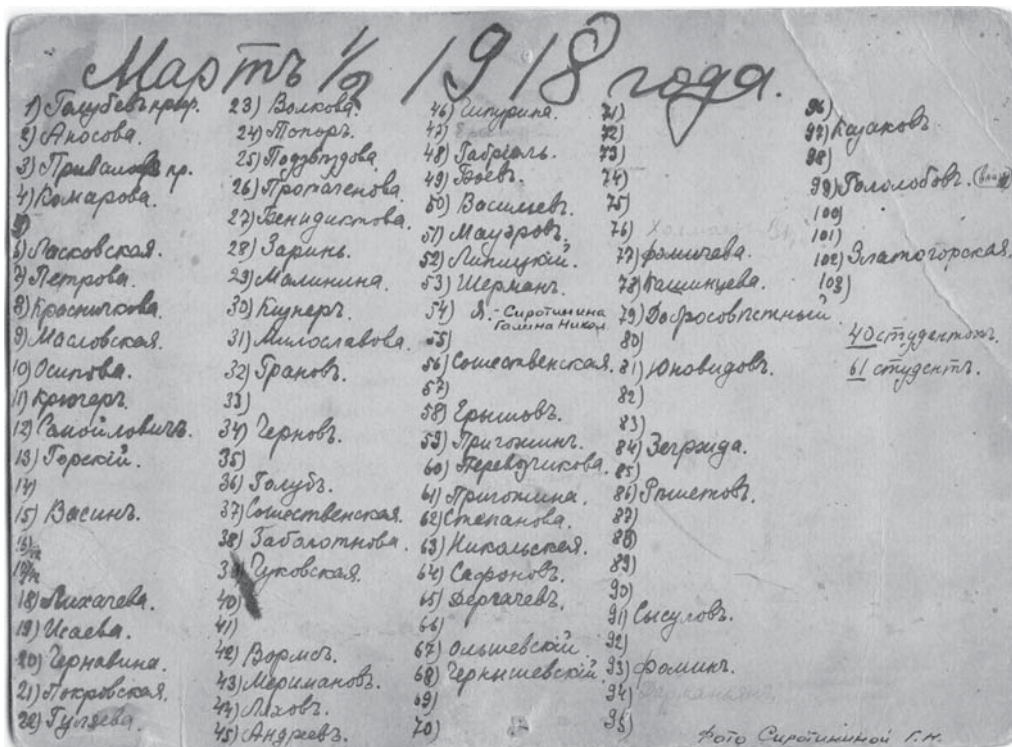 Мартъ 1/2 1918 года.
1) Голубевъ проф.
2) Аносова.
3) Приваловъ пр.
4) Комарова.
5)
6) Ласковская.
7) Петрова.
8)
9) Масловская.
10) Осипова.
11) Крюгеръ.
12) Самойловичъ.
13) Горскій.
14)
15) Васинъ.
16)
17)
18) Лихачева.
19) Исаева.
20) Чернавина.
21) Покровская.
22) Гуляева.
23) Волкова.
24) Топоръ.
25)
26) Протаченова.
27) Бенидиктова.
28) Заринь.
29) Малинина.
30) Кушнеръ.
31) Милославова.
32) Грановъ.
33)
34) Черновъ.
35)
36) Голубъ.
37) Сошественская.
38) Заболотнова.
39) Чуковская.
40)
41)
42) Вормсъ.
43) Меримановъ.
44) Ляховъ.
45) Андреевъ.
46) Шпурина.
47)
48) Габріэль.
49) Боевъ.
50) Васильевъ.
51) Мауэровъ.
52) Липицкій.
53) Шерманъ.
54) Я. - Сиротинина
Галина Никол.
55)
56) Сошественская.
57)
58) Ерышовъ.
59) Пригожинъ.
60) Перевозчикова.
61) Пригожина.
62) Степанова.
63) Никольская.
64) Сафоновъ.
65) Дергачевъ.
66)
67) Ольшевскій.
68) Чернышевскій.
69)
70)
71)
72)
73)
74)
75)
76)
77) Фомичева.
78) Кашинцева.
79) Добросовѣстный
80)
81) Юновидовъ.
82)
83)
84) Зегржда.
85)
86) Рѣшетовъ.
87)
88)
89)
90)
91) Сысуловъ.
92)
93) Фоминъ.
94)
95)
96)
97) Казаковъ.
98)
99) Гололобовъ.
100)
101)
102) Златогорская.
103)
40 студентокъ.
61 студентъ.
Фото Сиротининой Г.Н.